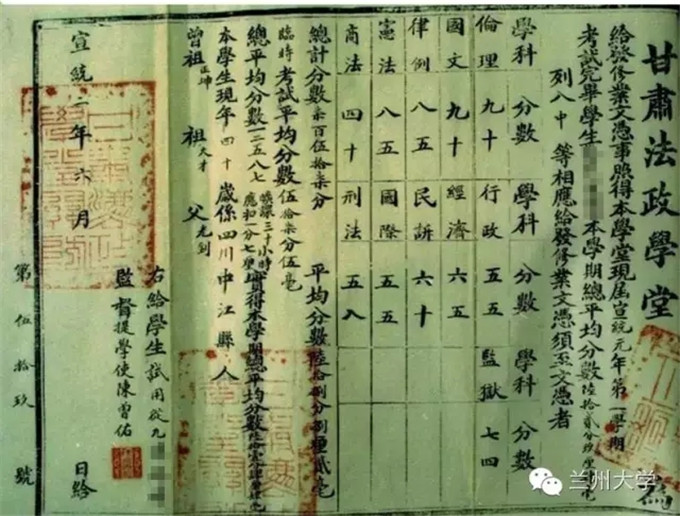 甘肅法政學堂
為
給發修業文憑事照得本學堂現屆宣統元年第一學期
考試完畢學生 本學期總平均分數陸拾貳分
列入中等相應給發修業文憑須至文憑者
學科 分數 學科 分數 學科 分數
倫理 九十 行政 五五 監獄 七四
國文 九十 經濟 六五
律例 八五 民訴 六十
憲法 八五 國際 五五
商法 四十 刑法 五八
總計分數柒百伍拾柒分 平均分數陸拾捌分捌釐貳毫
臨時考試平均分數伍拾柒分伍毫
總平均分數一二五八七 曠課三十小時應扣分七釐 實得本學期總平均分數陸拾
本學生現年四十歲係四川中江縣人
曾祖正坤 祖天才 父光到
右給學生試用從九
監督提學使陳曾佑
宣統二年六月 日給
第伍拾玖號
兰州大学